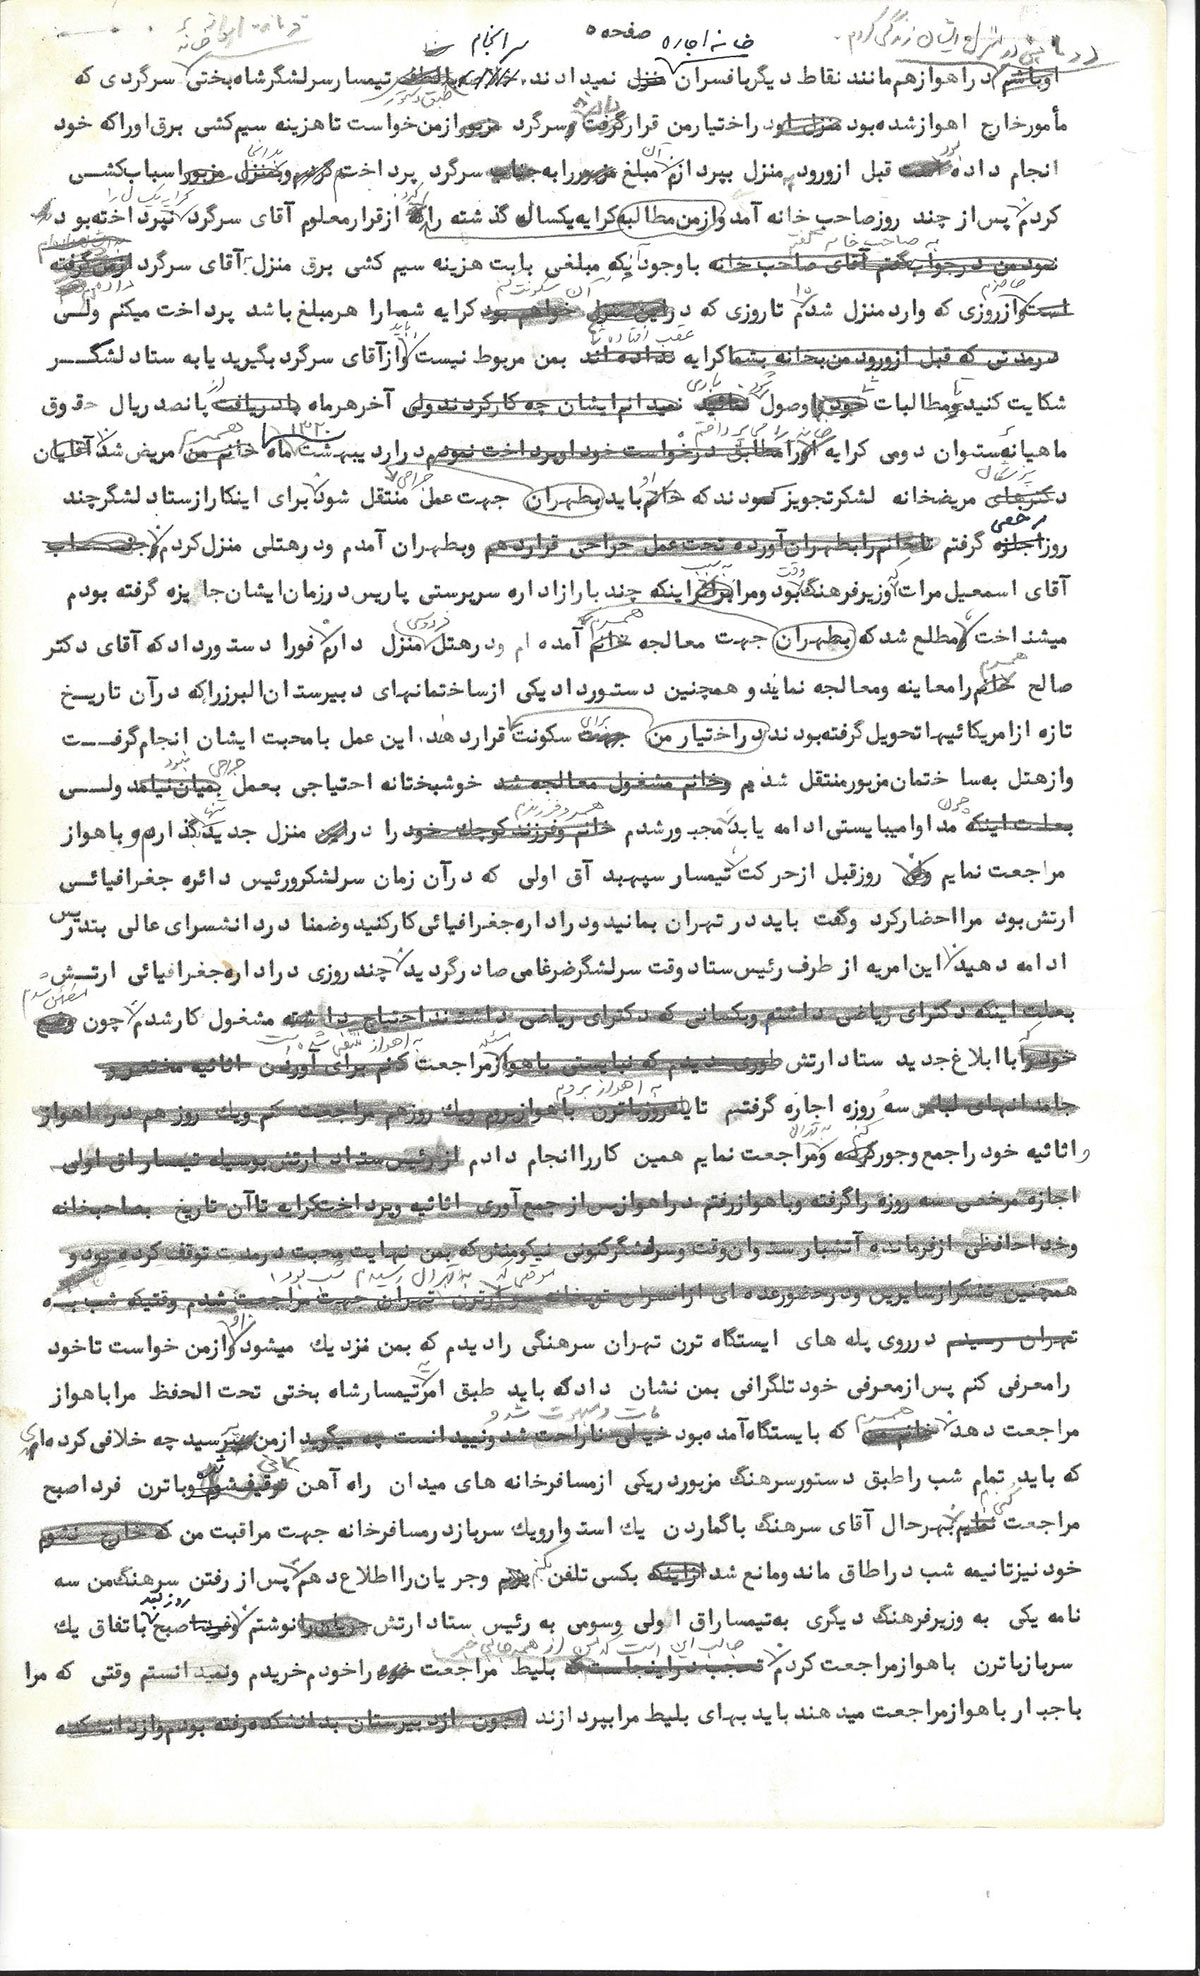 صفحه ۵
خانه اجاره
سرانجام
در منزل ایشان زندگی کردم.
اوباشم در اهواز هم مانند نقاط دیگر با افسران منزل نمیدادند. تیمسار سرلشگر شاه بختی سرگردی که
طبق دستور
مأمور خارج اهواز شده بود منزل خود در اختیار من قرار گرفت و سرگرد مزبور از من خواست تا هزینه سیم کشی برق او را که خود
انجام داده است قبل از ورود به منزل بپردازم مبلغ مزبور را به جناب سرگرد پرداخت کردم و بمنزل مزبور اسباب کشی
کردم پس از چند روز صاحب خانه آمد و از من مطالبه کرایه یکسال گذشته را از قرار معلوم آقای سرگرد نپرداخته بود
به صاحب خانه گفتم
نمود من در جواب گفتم آقای صاحب خانه با وجود آنکه مبلغی بابت هزینه سیم کشی برق منزل به آقای سرگرد از من گرفته
است از روزی که وارد منزل شدم تا روزی که در این منزل خواهم بود کرایه شما را هر مبلغ باشد پرداخت میکنم ولی
عقب افتاده
درمدتی که قبل از ورود من بخانه بشما کرایه نداده اند بمن مربوط نیست و از آقای سرگرد بگیرید یا به ستاد لشگر
شکایت کنید و مطالبات خود را وصول نمائید نمیدانم ایشان چه کار کردند ولی آخر هر ماه با دریافت پانصد ریال حقوق
خانه را می پرداختم
ماهیانه ستوان دومی کرایه او را مطابق درخواست خود او پرداخت نمودم در اردیبهشت ماه ۱۳۲۰ خانم من مریض شد آقایان
همسرم
پزشکان
دکترهای مریضخانه لشکر تجویز نمودند که خانم باید بطهران جهت عمل جراحی منتقل شود برای اینکار از ستاد لشگر چند
مرخصی
روز اجازه گرفتم تا خانم را بطهران آورده تحت عمل جراحی قرار دهم و بطهران آمدم و در هتلی منزل کردم
آقای اسمعیل مرات وزیر فرهنگ وقت بود و مرا برای اینکه چند بار از اداره سرپرستی پاریس در زمان ایشان جایزه گرفته بودم
میشناخت مطلع شد که بطهران جهت معالجه خانم آمده ام و در هتل فردوسی منزل دارم فورا دستور داد که آقای دکتر
همسرم
صالح خانم را معاینه و معالجه نماید و همچنین دستور داد یکی از ساختمانهای دبیرستان البرز را که در آن تاریخ
تازه از امریکائیها تحویل گرفته بودند در اختیار من جهت سکونت قرار دهد. این عمل با محبت ایشان انجام گرفت
برای
و از هتل به ساختمان مزبور منتقل شدیم و خانم مشغول معالجه شد خوشبختانه احتیاجی بعمل جراحی نبود بمیان نیامد ولی
همسر و فرزندم
بعلت اینکه مداوا میبایستی ادامه یابد مجبور شدم خانم و فرزند کوچک خود را در این منزل جدید تنها گذارم و باهواز
مراجعت نمایم روز قبل از حرکت تیمسار سپهبد آق اولی که در آن زمان سرلشکر و رئیس دائره جغرافیائی
ارتش بود مرا احضار کرد و گفت باید در تهران بمانید و در اداره جغرافیائی کار کنید و ضمنا در دانشسرای عالی بتدریس
ادامه دهید این امریه از طرف رئیس ستاد وقت سرلشگر ضرغامی صادر گردید چند روزی در اداره جغرافیائی ارتش
بعلت اینکه دکترای ریاضی داشتم و بکسانی که دکترای ریاضی داشتند احتیاج داشته مشغول کار شدم چون
خود را با ابلاغ جدید ستاد ارتش طوری دیدم که نبایستی باهواز مراجعت کنم برای آوردن اثاثیه مختصر و
به اهواز بروم
جامدانهای لباس سه روزه اجازه گرفتم تا یک روز با ترن باهواز بروم و یک روز هم مراجعت کنم و یک روز هم در اهواز
اثاثیه خود را جمع و جور کرده و مراجعت نمایم همین کار را انجام دادم از رئیس ستاد ارتش بوسیله تیمسار آق اولی
به تهران
اجازه مرخصی سه روزه را گرفته و باهواز رفتم در اهواز پس از جمع آوری اثاثیه و پرداخت کرایه تا آن تاریخ بصاحبخانه
و خداحافظی از فرمانده آتشبار ستوان وقت و سرلشگر کنونی نیکومنش که بمن نهایت محبت در مدت توقف کرده بود و
به تهران رسیدم شب بود
همچنین تشکر از سایرین و در حضور عده ای از افسران توپخانه سوار ترن تهران جهت مراجعت شدم وقتیکه شب به
تهران رسیدم در روی پله های ایستگاه ترن تهران سرهنگی را دیدم که بمن نزدیک میشود و از من خواست تا خود
را معرفی کنم پس از معرفی خود تلگرافی بمن نشان داد که باید طبق امر تیمسار شاه بختی تحت الحفظ مرا باهواز
همسرم
مات و مبهوت شد و
مراجعت دهد خانم من که بایستگاه آمده بود خیلی ناراحت شد و نمیدانست چه میگوید از من پرسید چه خلافی کرده ام
که باید تمام شب را طبق دستور سرهنگ مزبور در یکی از مسافرخانه های میدان راه آهن توقیف شوم و با ترن فردا صبح
مراجعت نمایم بهرحال آقای سرهنگ با گماردن یک استوار و یک سرباز در مسافرخانه جهت مراقبت من که خارج نشوم
خود نیز تا نیمه شب در اطاق ماند و مانع شد از اینکه بکسی تلفن بکنم و جریان را اطلاع دهم پس از رفتن سرهنگ من سه
روز بعد
نامه یکی به وزیر فرهنگ دیگری به تیمسار آق اولی و سومی به رئیس ستاد ارتش جریان را نوشتم و فردا صبح باتفاق یک
جالب این است که پس از همه
سرباز با ترن باهواز مراجعت کردم تعجب در اینجاست که بلیط مراجعت خود را خودم خریدم و نمیدانستم وقتی که مرا
باجبار باهواز مراجعت میدهند باید بهای بلیط مرا بپردازند چون از دبیرستان بدانشکده رفته بودم و از دانشکده